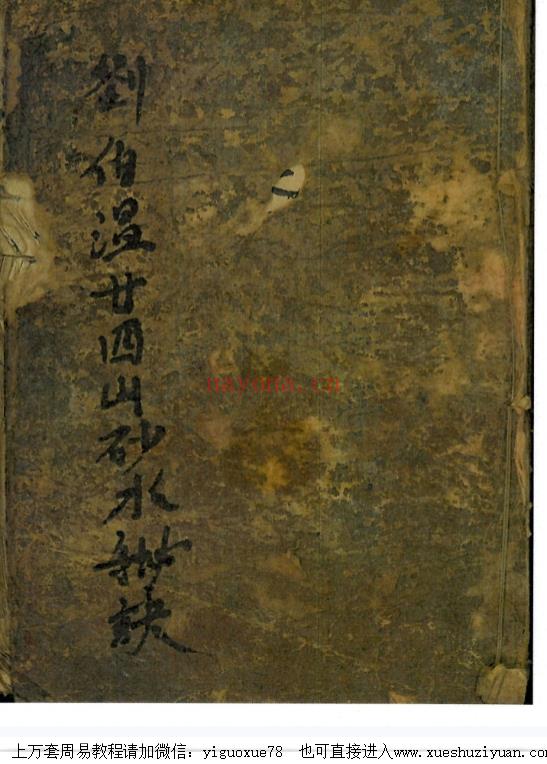 劉伯温廿四山砂水秘訣
nayona.cn
上万套周易教程请加微信：yiguoxue78 也可直接进入www.xueshuziyuan.com